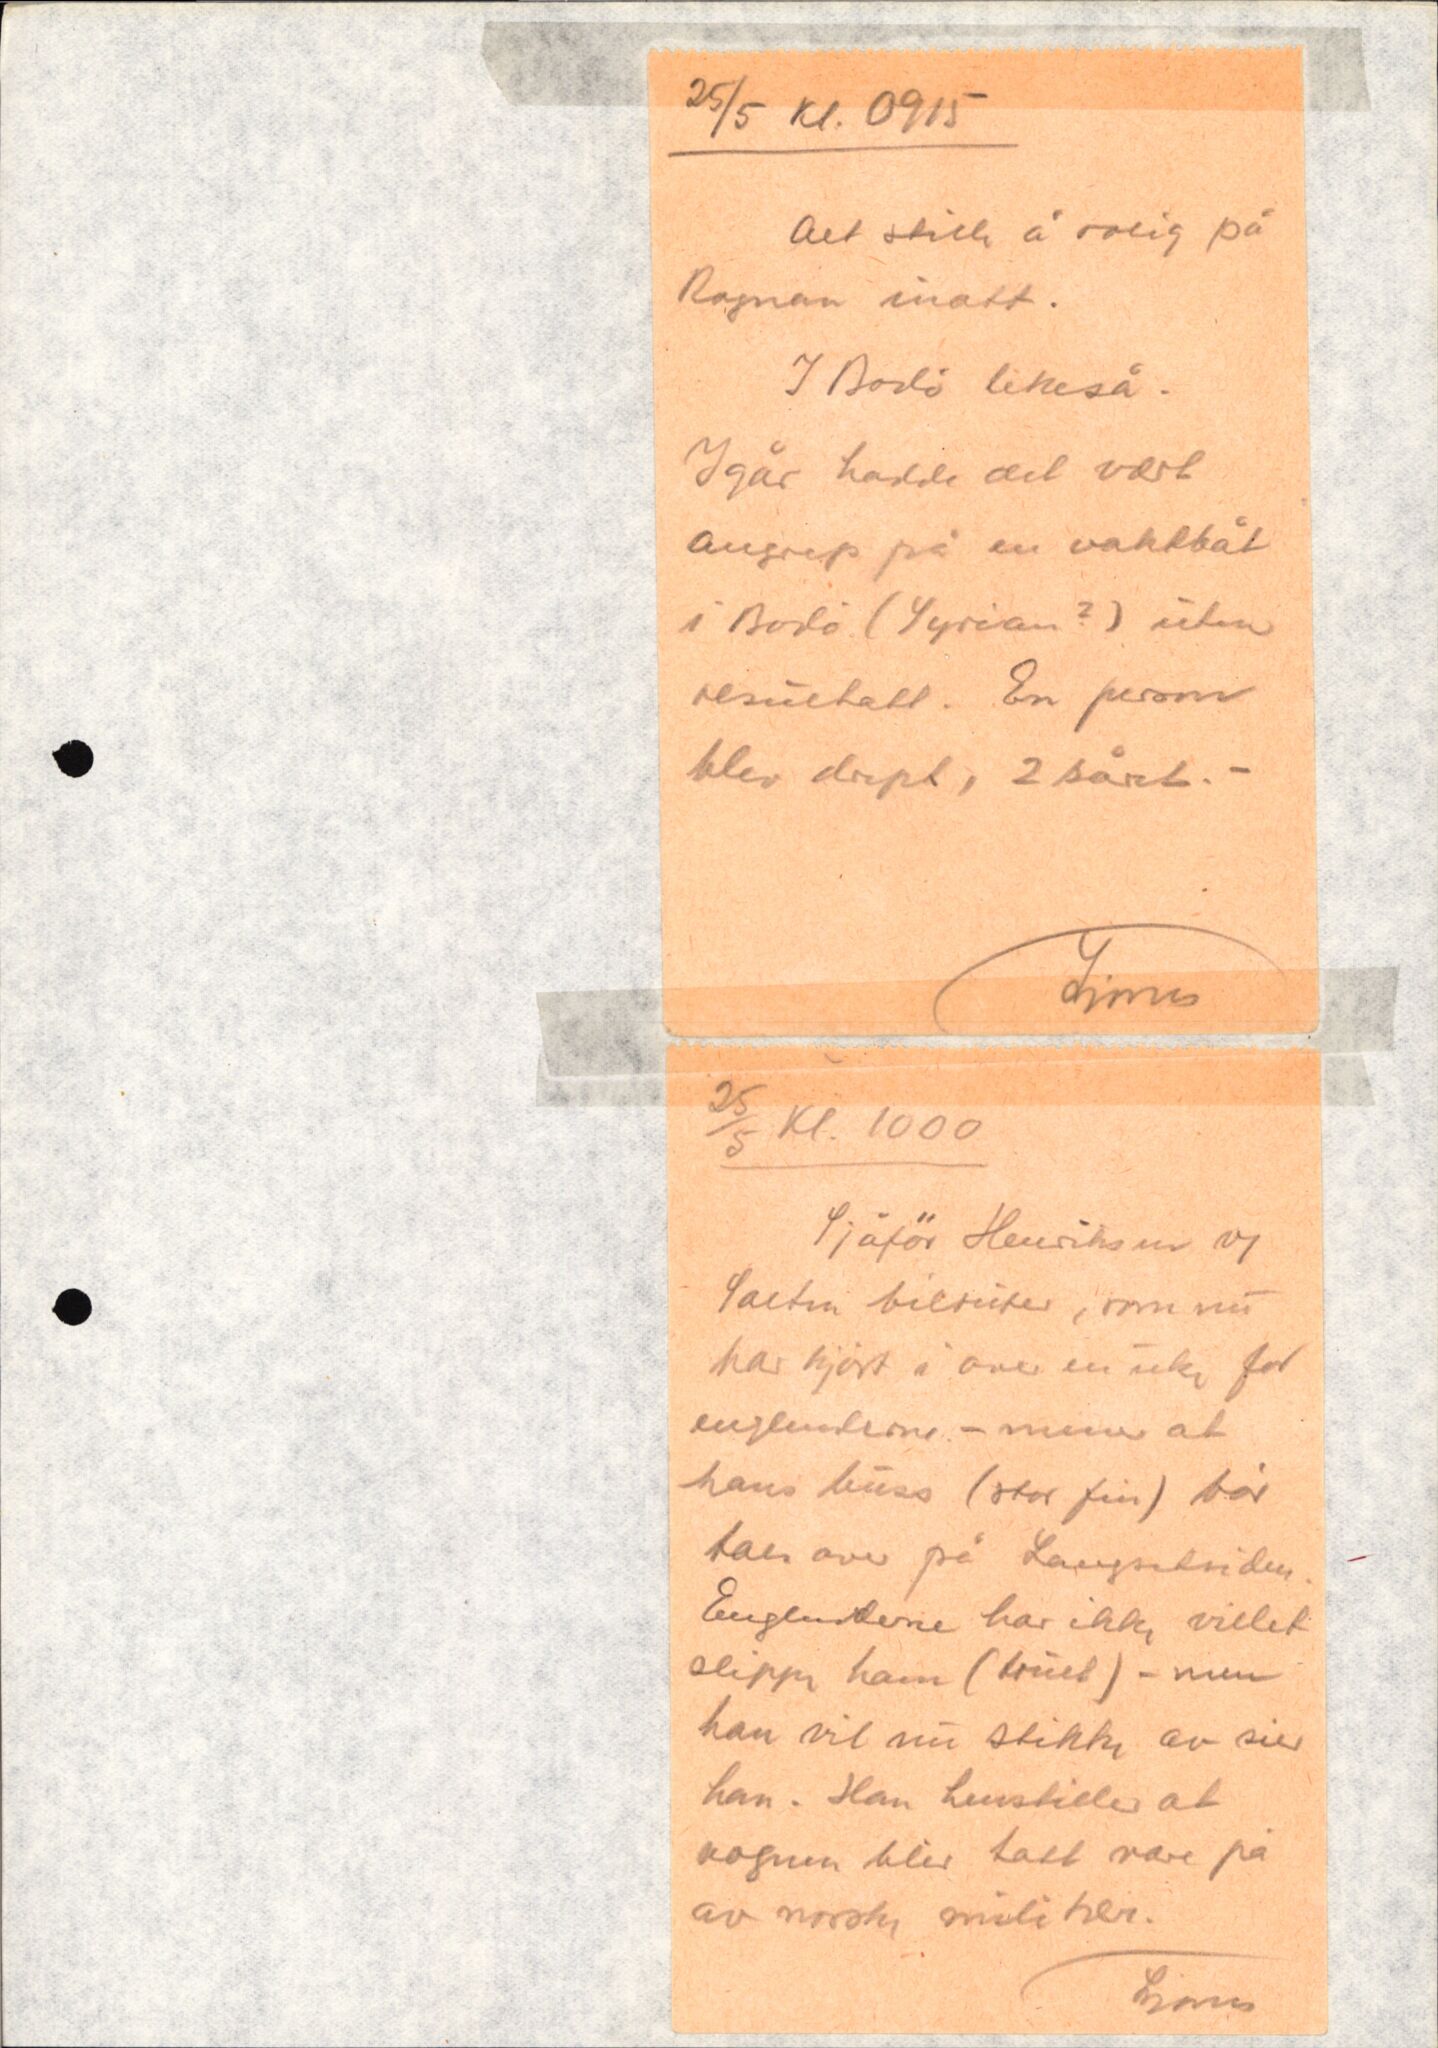 25/5 Kl. 0915
Alt stille å rolig på
Rognan inatt.
I Bodö likeså.
Igår hadde det vært
angrep på en vaktbåt
i Bodö (Syrian?) uten
resultatt. En person
blev drept, 2 såret. -
25/5 Kl. 1000
Sjåför Henriksen v/
Salten bilruter, som nu
har kjört i over en uke for
englenderne - mener at
hans buss (stor fin) bör
taes over på Langsetsiden.
Englenderne har ikke villet
slippe ham (truet) - men
han vil nu stikke av sier
han. Han henstiller at
vognen blir tatt vare på
av norsk militær.